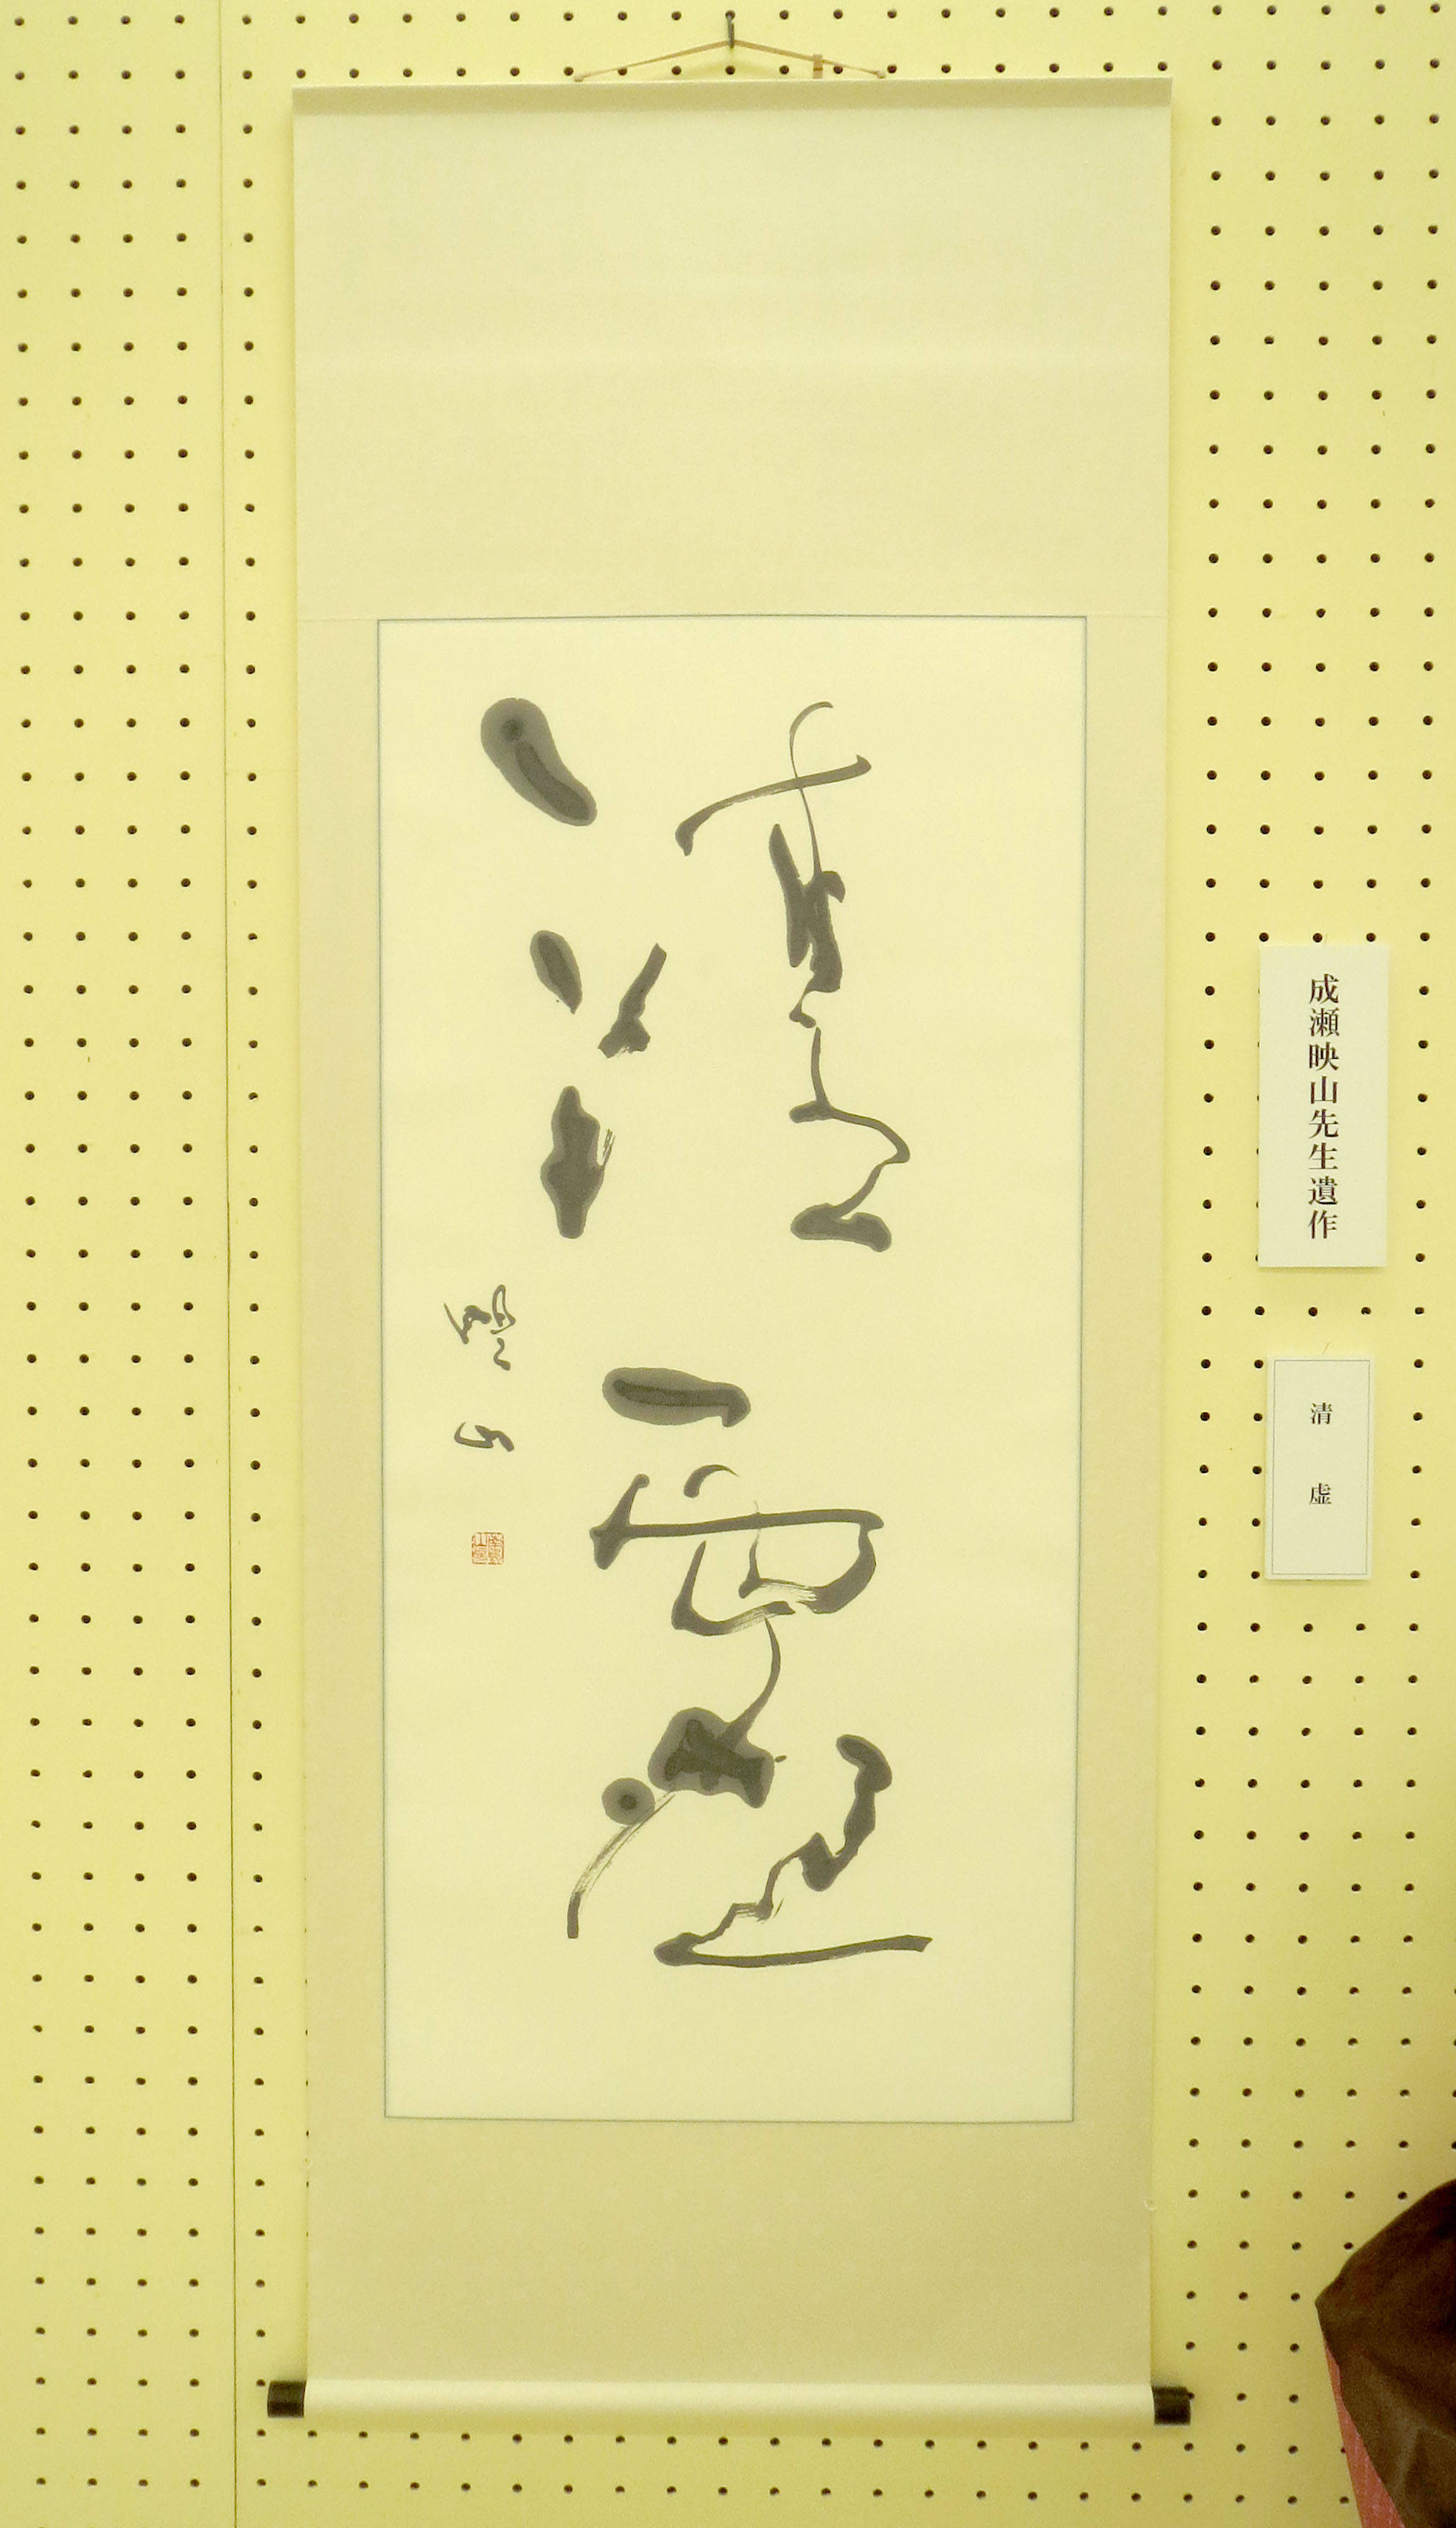 成瀬映山先生遺作
清虚
清虚
映山